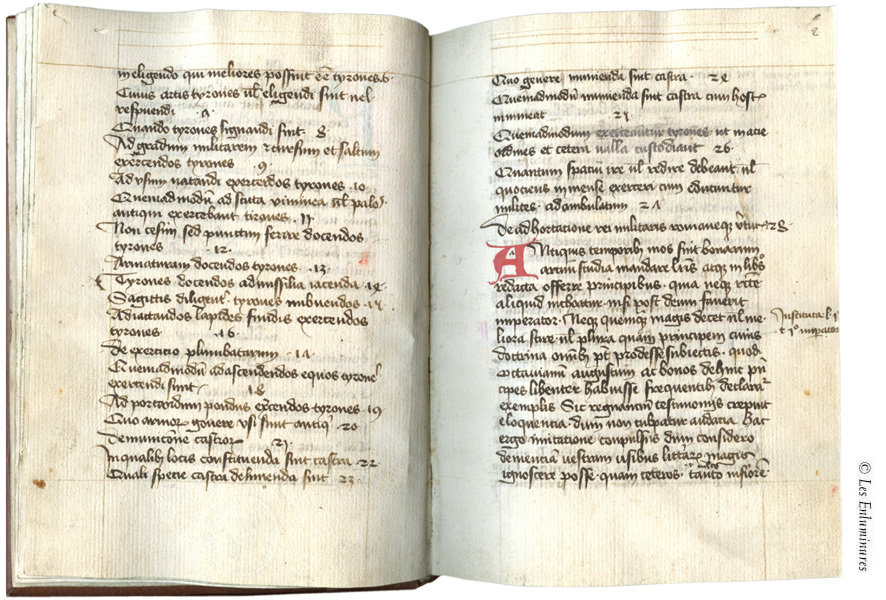 in eligendo qui meliores possint ēē tyrones 6
Cuius artis tyrones ul' eligendi sint uel
respuendi · 7 ·
Quando tyrones signandi sint · 8
Ad gradum militarem & cursum et saltum
exercendos tyrones · 9 ·
Ad usum natandi exercendos tyrones · 10 ·
Quemadmodū ad scuta uiminea ul' palos
antiqui exercebant tirones · 11 ·
Non cesim sed punctim ferire docendos
tyrones · 12 ·
Armaturam docendos tyrones · 13 ·
Tyrones docendos ad missilia iacienda · 14 ·
Sagittis diligenter tyrones imbuendos · 15
Ad iactandos lapides fundis exercendos
tyrones · 16
De exercitio plumbatarum · 17
Quemadmodū ad ascendendos equos tyrones
exercendi sunt · 18
Ad portandum pondus exercendos tyrones · 19
Quo armorum genere usi sunt antiqui · 20
De munitione castrorum · 21 ·
In qualibus locis constituenda sint castra · 22
Quali specie castra delinienda sint · 23 ·
Quo genere munienda sint castra · 24
Quemadmodū munienda sint castra cum hostis
immineat · 25
Quemadmodum exerceantur tyrones ut in acie
ordines et cetera ualla custodiant · 26 ·
Quantum spatium ire ul' redire debeant ul'
quociens in mense exerceri cum educuntur
milites ambulatum · 27
De adhortacione rei militaris romaneque uirtutis · 28 ·
Antiquis temporibus mos fuit bonarum
artium studia mandare litteris atque in libros
redacta offerre principibus · quia neque recte
aliquid inchoatur nisi post deum fauerit
imperator · Neque quemquam magis decet uel me-
liora scire uel plura quam principem cuius
doctrina omnibus potest prodesse subiectis · quod
octauianum augustum ac bonos dehinc prin
cipes libenter habuisse frequentibus declaratur
exemplis Sic regnantium testimoniis crepuit
eloquentia · dum non culpatur audatia Hac
ergo imitatione compulsus dum considero
clementiam uestram ausibus litterarum magis
ignoscere posse · quam ceteros · tanto inferiorem
© Les Enluminures